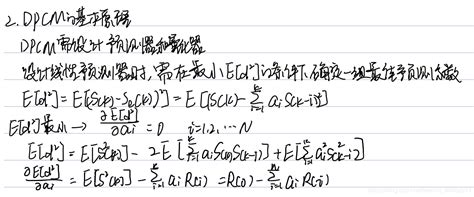 2. DPCM的基本原理
DPCM需设计预测器和量化器
设计线性预测器时,需在最小E[d²]的条件下,确定一组最佳预测系数
E[d²]=E[(S(k)-Se(k))²]=E[(S(k)-∑ aiS(k-i))²]
E[d²]最小→ ∂E[d²]/∂ai =0 i=1,2,…N
E[d²]=E[S²(k)]-2E[∑ aiS(k)S(k-i)]+E[∑ ai²S²(k-i)]
∂E[d²]/∂ai =E[S²(k)]-∑ aiR(i)=R(0)-∑ aiR(i)